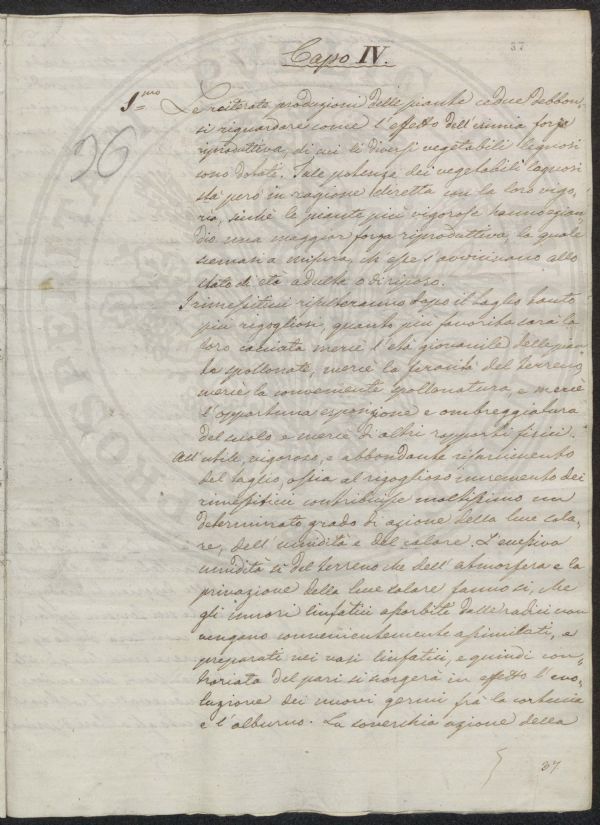 37
Capo IV.
1.mo Le reiterate produzioni delle piante cedue debbon-
si riguardare come l'effetto dell'innia forza
riproduttiva, di cui li diversi vegetabili legnosi
sono dotati. Tale potenza dei vegetabili legnosi
stà però in ragione diretta con la loro vigo-
ria, sicchè le piante più vigorose hanno ezian-
dio una maggior forza riproduttiva, la quale
scemasi a misura, che esse s'avvicinano allo
stato di età adulta o di riposo.
I rimessiticci risulteranno dopo il taglio tanto
più rigogliosi, quanto più favorita sarà la
loro cacciata mercè l'età giovanile delle pian-
te spollonate, mercè la feracità del terreno,
mercè la conveniente spollonatura, e mercè
l'opportuna esposizione e ombreggiatura
del suolo e mercè di altri rapporti fisici.
All'utile, vigoroso, e abbondante rifornimento
del taglio, ossia al rigoglioso incremento dei
rimessiticci contribuisce moltissimo un
determinato grado di azione della luce sola-
re, dell'umidità e del calore. L'eccessiva
umidità sì del terreno che dell'atmosfera e la
privazione della luce solare fanno sì, che
gli umori linfatici assorbiti dalle radici non
vengano convenientemente assimilati, e
preparati nei vasi linfatici, e quindi con-
trariata del pari si scorgerà in effetto l'evo-
luzione dei nuovi germi fra la corteccia
e l'alburno. La soverchia azione della
37
36
PROSPERITA